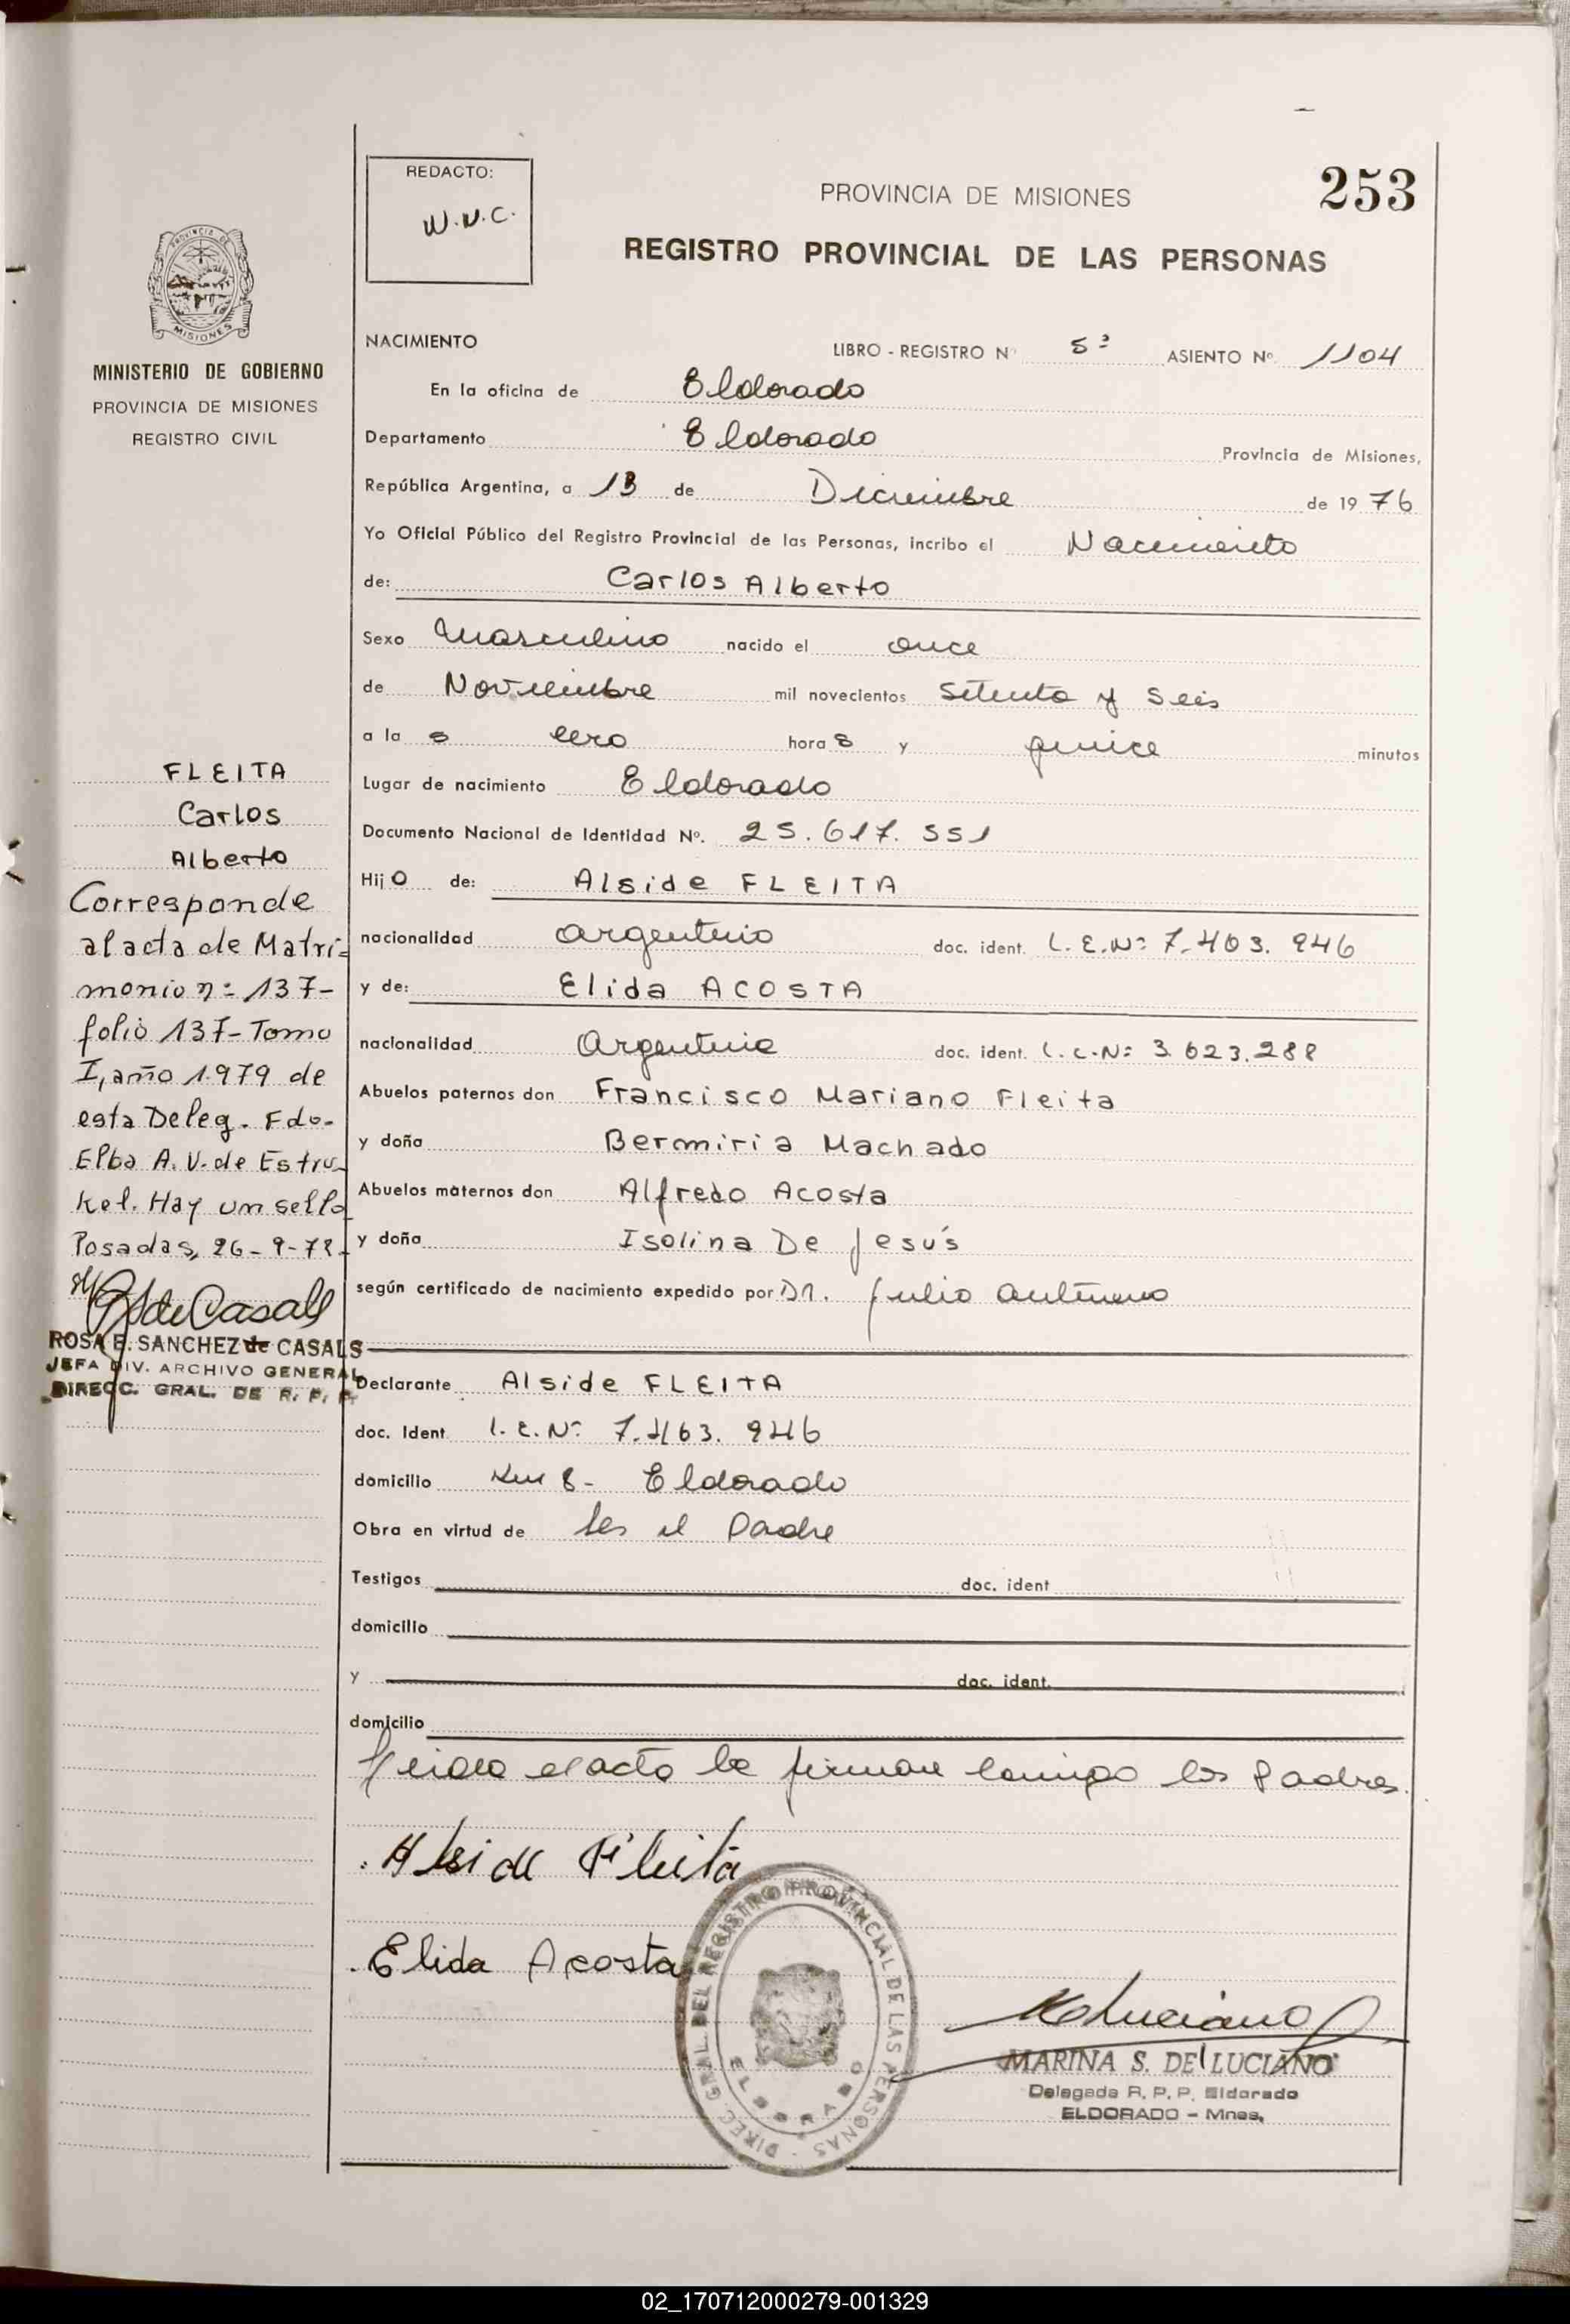 REDACTO:
W.N.C.
PROVINCIA DE MISIONES
253
REGISTRO PROVINCIAL DE LAS PERSONAS
PROVINCIA DE
MISIONES
MINISTERIO DE GOBIERNO
PROVINCIA DE MISIONES
REGISTRO CIVIL
NACIMIENTO
LIBRO - REGISTRO Nº 5º ASIENTO Nº 1104
En la oficina de Eldorado
Departamento Eldorado Provincia de Misiones,
República Argentina, a 13 de Diciembre de 1976
Yo Oficial Público del Registro Provincial de las Personas, incribo el Nacimiento
de: Carlos Alberto
Sexo Masculino nacido el once
de Noviembre mil novecientos Setenta y Seis
a la s cero hora s y quince minutos
Lugar de nacimiento Eldorado
Documento Nacional de Identidad Nº. 25.617.551
Hijo de: Alside FLEITA
nacionalidad argentino doc. ident. L.E.Nº 7.463.946
y de: Elida ACOSTA
nacionalidad Argentina doc. ident. L.C.Nº 3.623.288
Abuelos paternos don Francisco Mariano Fleita
y doña Bermiria Machado
Abuelos maternos don Alfredo Acosta
y doña Isolina De Jesús
según certificado de nacimiento expedido por Dr. Julio
Declarante Alside FLEITA
doc. Ident L.E.Nº 7.463.946
domicilio Km 8- Eldorado
Obra en virtud de Ser el Padre
Testigos doc. ident
domicilio
y doc. ident.
domicilio
Leida el acta la firman conmigo los Padres.
Alside Fleita
Elida Acosta
DIREC. GRAL. DEL REGISTRO PROVINCIAL DE LAS PERSONAS
ELDORADO
MARINA S. DE LUCIANO
Delegada R. P. P. Eldorado
ELDORADO - Mnes.
FLEITA
Carlos
Alberto
Corresponde
al acta de Matri=
monio nº 137-
folio 137-Tomo
I, año 1.979 de
esta Deleg. Fdo.
Elba A. V. de Estru_
kel. Hay un sello
Posadas, 26-9-79.
ROSA E. SANCHEZ de CASALS
JEFA DIV. ARCHIVO GENERAL
DIRECC. GRAL. DE R. P. P.
02_170712000279-001329